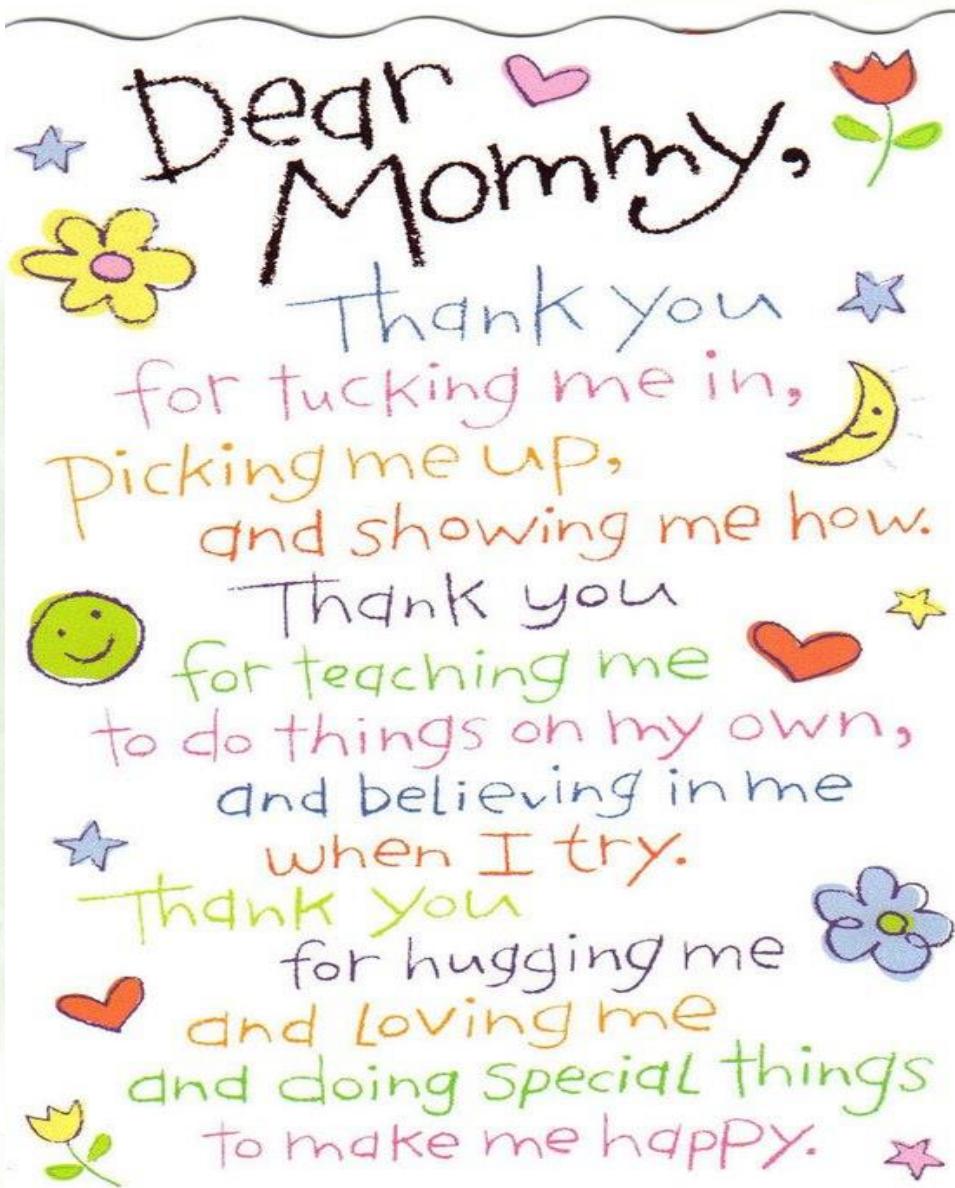 Dear
Mommy,
Thank you
for tucking me in,
picking me up,
and showing me how.
Thank you
for teaching me
to do things on my own,
and believing in me
when I try.
Thank you
for hugging me
and loving me
and doing special things
to make me happy.